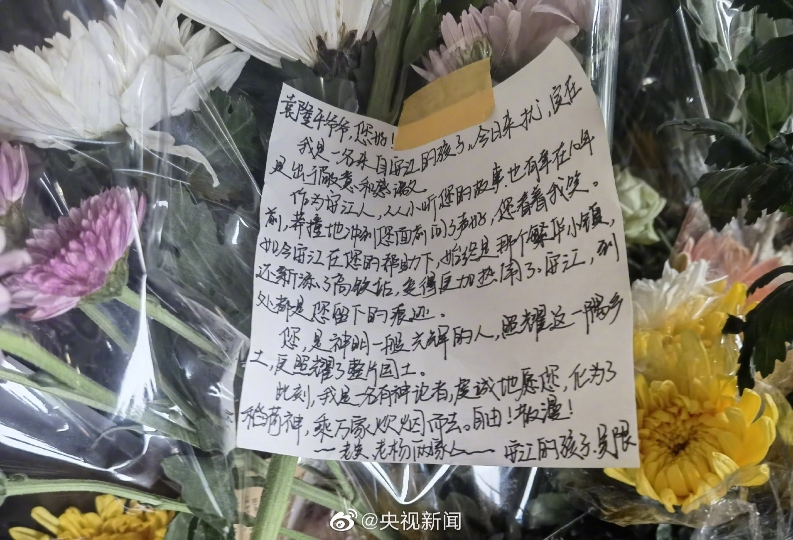 袁隆平爷爷,您好!
我是一名来自安江的孩子,今日来扰,实在
是出于敬意和感激
作为安江人,从小听您的故事,也有幸在10年
前,莽撞地冲到您面前问了声好,您看着我笑。
如今安江在您的帮助下,始终是那个繁华小镇,
还新添了高铁站,变得更加热闹了。安江,到
处都是您留下的痕迹。
您,是神明一般光辉的人,照耀这一隅乡
土,更照耀了整片国土。
此刻,我是一名有神论者,虔诚地愿您,化为了
稻荷神,乘万家炊烟而去。自由!散漫!
——老吴、老杨两家人—— 安江的孩子
@央视新闻